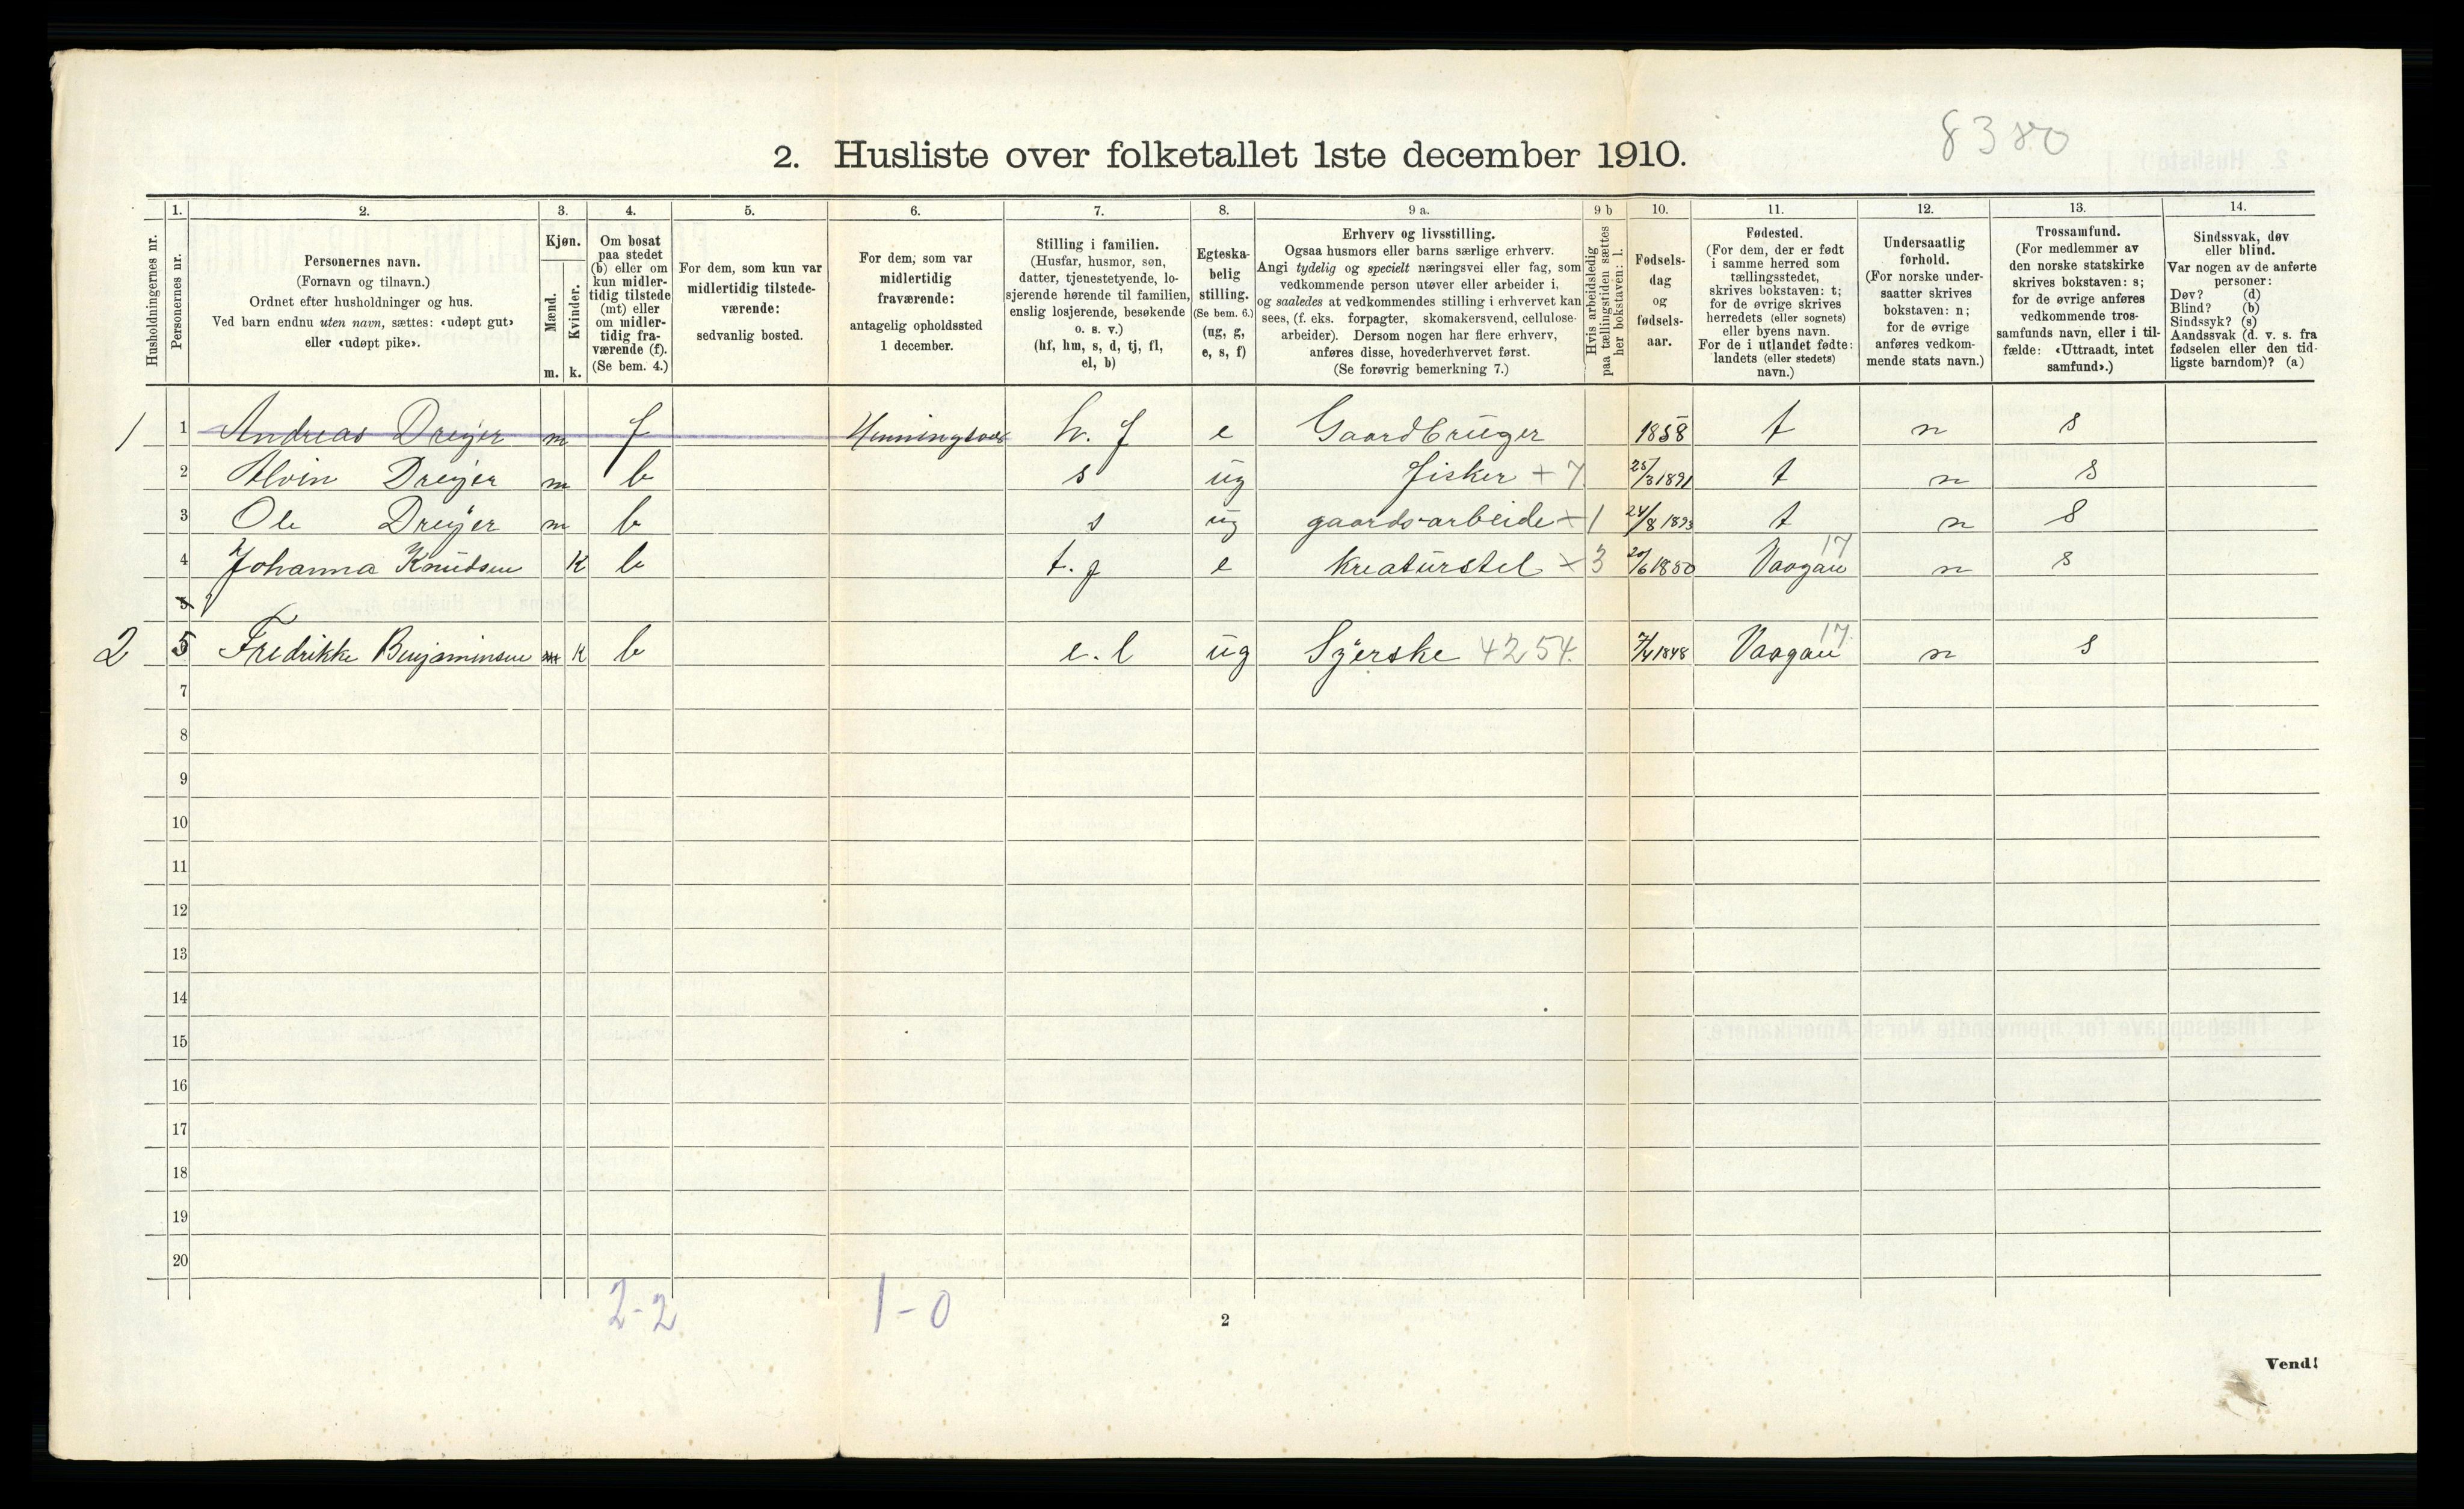 8380
2. Husliste over folketallet 1ste december 1910.
Husholdningernes nr.
1.
Personernes nr.
2.
Personernes navn.
(Fornavn og tilnavn.)
Ordnet efter husholdninger og hus.
Ved barn endnu uten navn, sættes: «udøpt gut»
eller «udøpt pike».
3.
Kjøn.
Mænd.
Kvinder.
m. k.
4.
Om bosat
paa stedet
(b) eller om
kun midler-
tidig tilstede
(mt) eller
om midler-
tidig fra-
værende (f).
(Se bem. 4.)
5.
For dem, som kun var
midlertidig tilstede-
værende:
sedvanlig bosted.
6.
For dem, som var
midlertidig
fraværende:
antagelig opholdssted
1 december.
7.
Stilling i familien.
(Husfar, husmor, søn,
datter, tjenestetyende, lo-
sjerende hørende til familien,
enslig losjerende, besøkende
o. s. v.)
(hf, hm, s, d, tj, fl,
el, b)
8.
Egteska-
belig
stilling.
(Se bem. 6.)
(ug, g,
e, s, f)
9 a.
Erhverv og livsstilling.
Ogsaa husmors eller barns særlige erhverv.
Angi tydelig og specielt næringsvei eller fag, som
vedkommende person utøver eller arbeider i,
og saaledes at vedkommendes stilling i erhvervet kan
sees, (f. eks. forpagter, skomakersvend, cellulose-
arbeider). Dersom nogen har flere erhverv,
anføres disse, hovederhvervet først.
(Se forøvrig bemerkning 7.)
9 b
Hvis arbeidsledig
paa tællingstiden sættes
her bokstaven: l.
10.
Fødsels-
dag
og
fødsels-
aar.
11.
Fødested.
(For dem, der er født
i samme herred som
tællingsstedet,
skrives bokstaven: t;
for de øvrige skrives
herredets (eller sognets)
eller byens navn.
For de i utlandet fødte:
landets (eller stedets)
navn.)
12.
Undersaatlig
forhold.
(For norske under-
saatter skrives
bokstaven: n;
for de øvrige
anføres vedkom-
mende stats navn.)
13.
Trossamfund.
(For medlemmer av
den norske statskirke
skrives bokstaven: s;
for de øvrige anføres
vedkommende tros-
samfunds navn, eller i til-
fælde: «Uttraadt, intet
samfund».)
14.
Sindssvak, døv
eller blind.
Var nogen av de anførte
personer:
Døv? (d)
Blind? (b)
Sindssyk? (s)
Aandssvak (d. v. s. fra
fødselen eller den tid-
ligste barndom)? (a)
1 1 Andreas Dreyer m f Henningsvær h. f e Gaardbruger 1858 t n s
2 Alvin Dreyer m b s ug fisker + 7 25/3 1891 t n s
3 Ole Dreyer m b s ug gaardsarbeide + 1 24/8 1893 t n s
4 Johanna Knudsen K b t. j e kreaturstel × 3 20/6 1850 Vaagan 17 n s
5
2 5 Fredrikke Benjaminsen K b e. l ug Syerske 4254. 7/4 1848 Vaagan 17. n s
7
8
9
10
11
12
13
14
15
16
17
18
19
20
2-2 1-0
2
Vend!